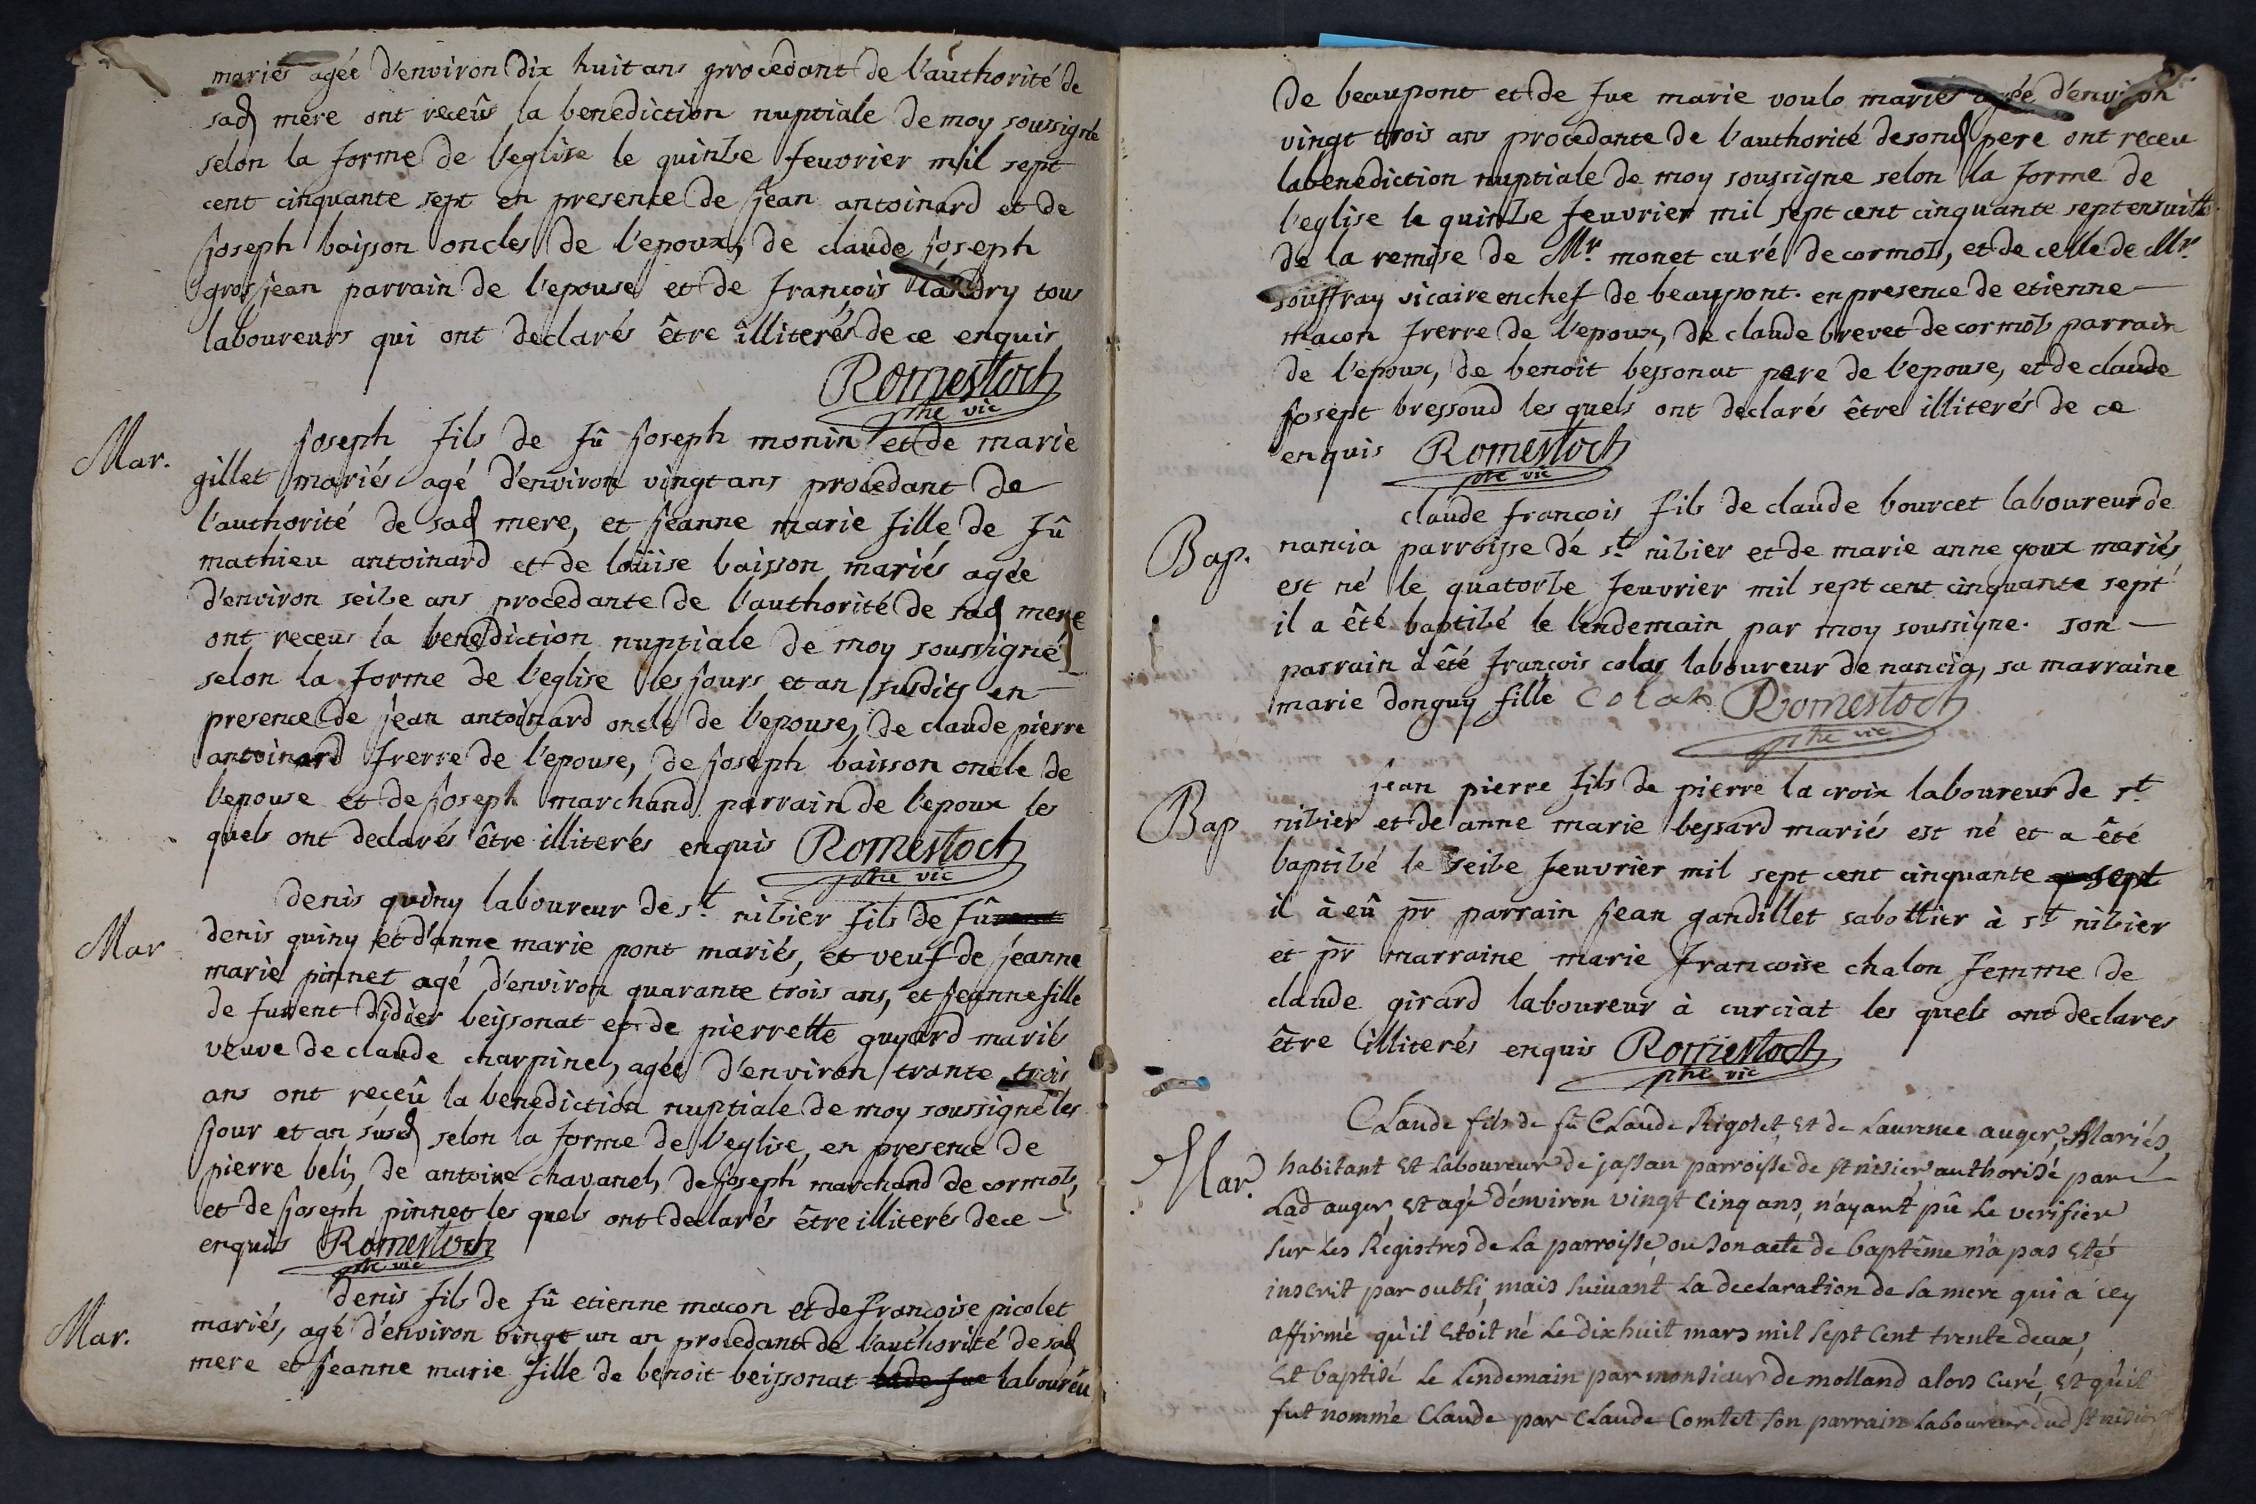 mariés agée d'environ dix huit ans procedant de l'authorité de
sad mere ont receûs la benediction nuptiale de moy soussigné
selon la forme de l'eglise le quinze feuvrier mil sept
cent cinquante sept en presence de jean antoinard et de
joseph baisson oncles de l'epoux, de claude joseph
gros jean parrain de l'epouse et de françois landry tous
laboureurs qui ont declarés être illiterés de ce enquis
Romestoch
ptre vic
Mar.
joseph fils de fû joseph monin et de marie
gillet mariés agé d'environ vingt ans procedant de
l'authorité de sad mere, et jeanne marie fille de fû
mathieu antoinard et de loüise baisson mariés agée
d'environ seize ans procedante de l'authorité de sad mere
ont receus la benediction nuptiale de moy soussigné
selon la forme de l'eglise les jours et an susdits en
presence de jean antoinard oncle de l'epouse, de claude pierre
antoinard frerre de l'epouse, de joseph baisson oncle de
l'epouse et de joseph marchand parrain de l'epoux les
quels ont declarés être illiterés enquis Romestoch
ptre vic
Mar
denis quiny laboureur de st nizier fils de fû
denis quiny et d'anne marie pont mariés, et veuf de jeanne
marie pinnet agé d'environ quarante trois ans, et jeanne fille
de furent didier beissonat et de pierrette guyard mariés
veuve de claude charpinel, agée d'environ trante trois
ans ont receû la benediction nuptiale de moy soussigné les
jour et an susd selon la forme de l'eglise, en presence de
pierre beli, de antoine chavanel, de joseph marchand de cormoz,
et de joseph pinnet les quels ont declarés être illiterés de ce
enquis Romestoch
ptre vic
Mar.
denis fils de fû etienne macon et de françoise picolet
mariés, agé d'environ vingt un an procedant de l'authorité de sad
mere et jeanne marie fille de benoit beissonat et de fue laboureu
de beaupont et de fue marie voulo mariés agée d'environ
vingt trois ans procedante de l'authorité de sond pere ont receu
la benediction nuptiale de moy soussigne selon la forme de
l'eglise le quinze feuvrier mil sept cent cinquante sept ensuitte
de la remise de Mr monet curé de cormoz, et de celle de Mr
souffray vicaire en chef de beaupont. en presence de etienne
macon frerre de l'epoux, de claude brevet de cormoz parrain
de l'epoux, de benoit bessonat pere de l'epouse, et de claude
josept bressoud les quels ont declarés être illiterés de ce
enquis Romestoch
ptre vic
Bap.
claude françois fils de claude bourcet laboureur de
nancia parroisse de st nizier et de marie anne goux mariés
est né le quatorze feuvrier mil sept cent cinquante sept
il a êté baptizé le lendemain par moy soussigne. son
parrain à été françois colas laboureur de nancia, sa marraine
marie donguy fille Colas Romestoch
ptre vic
Bap
jean pierre fils de pierre la croix laboureur de st
nizier et de anne marie bessard mariés est né et a êté
baptizé le seize feuvrier mil sept cent cinquante sept
il à eû pr parrain jean gandillet sabottier à st nizier
et pr marraine marie françoise chalon femme de
claude girard laboureur à curciat les quels ont declares
être illiterés enquis Romestoch
ptre vic
Mar.
Claude fils de fû Claude Rigolet, Et de Laurence auger, Mariés,
habitant Et Laboureur de jassan parroisse de st nisier, authorisé par
Lad auger, Et agé d'environ vingt Cinq ans, n'ayant pû Le verifier
sur Les Registres de La parroisse, ou son acte de baptême n'a pas Etés
inscrit par oubli, mais suivant La declaration de sa mere qui a icy
affirmé qu'il Etoit né Le dixhuit mars mil sept Cent trente deux,
Et baptisé Le Lendemain par monsieur de molland alors Curé, Et qu'il
fut nommé Claude par Claude Comtet son parrain Laboureur dud st nisier